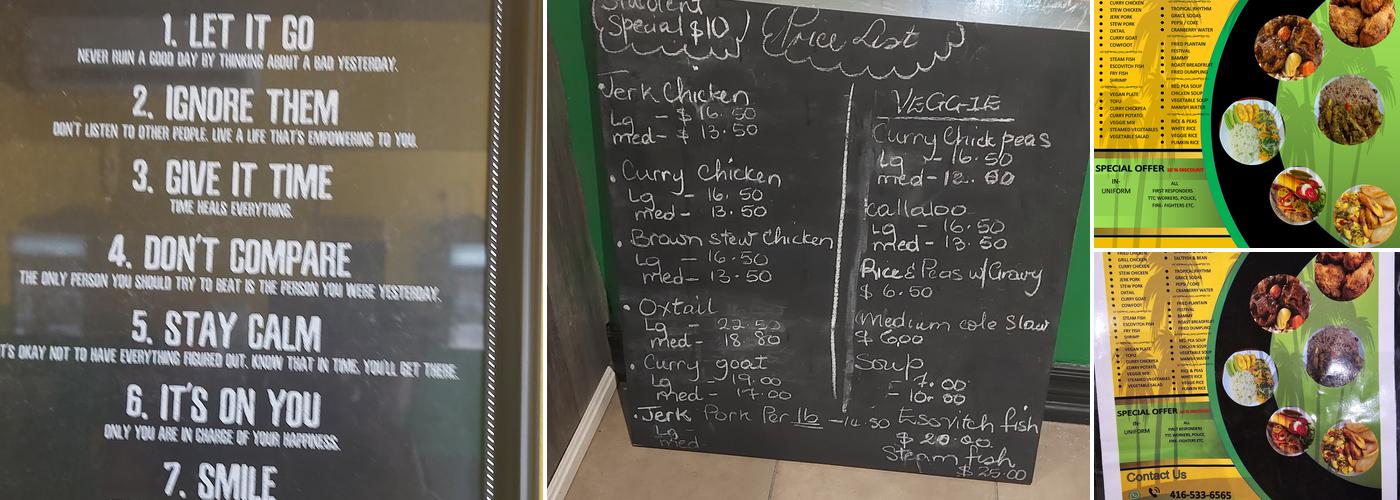 1. LET IT GO
NEVER RUIN A GOOD DAY BY THINKING ABOUT A BAD YESTERDAY.
2. IGNORE THEM
DON'T LISTEN TO OTHER PEOPLE. LIVE A LIFE THAT'S EMPOWERING TO YOU.
3. GIVE IT TIME
TIME HEALS EVERYTHING.
4. DON'T COMPARE
THE ONLY PERSON YOU SHOULD TRY TO BEAT IS THE PERSON YOU WERE YESTERDAY.
5. STAY CALM
T'S OKAY NOT TO HAVE EVERYTHING FIGURED OUT. KNOW THAT IN TIME, YOU'LL GET THERE.
6. IT'S ON YOU
ONLY YOU ARE IN CHARGE OF YOUR HAPPINESS.
7. SMILE
Student
Special $10
Price List
Jerk Chicken
Lg - $ 16.50
med- $ 13.50
Curry Chicken
Lg - 16.50
med- 13.50
Brown stew Chicken
Lg - 16.50
med- 13.50
Oxtail
Lg - 22.50
med- 18.80
Curry goat
Lg - 19.00
med - 17.00
Jerk Pork Per lb -14.50
Lg-
med
VEGGIE
Curry Chick peas
Lg - 16.50
med-12.00
Callaloo
LG - 16.50
med- 13.50
Rice & Peas w/Gravy
$ 6.50
Medium cole Slaw
$ 6.00
Soup
- 7.00
- 10.00
Escvitch fish
$ 20.00
Steam fish
$25.00
CURRY CHICKEN
STEW CHICKEN
JERK PORK
STEW PORK
OXTAIL
CURRY GOAT
COWFOOT
STEAM FISH
ESCOVITCH FISH
FRY FISH
SHRIMP
VEGAN PLATE
TOFU
CURRY CHICKPEA
CURRY POTATO
VEGGIE MIX
STEAMED VEGETABLES
VEGETABLE SALAD
TROPICAL RHYTHM
GRACE SODAS
PEPSI / COKE
CRANBERRY WATER
FRIED PLANTAIN
FESTIVAL
BAMMY
ROAST BREADFRUIT
FRIED DUMPLING
RED PEA SOUP
CHICKEN SOUP
VEGETABLE SOUP
MANISH WATER
RICE & PEAS
WHITE RICE
VEGGIE RICE
PUMKIN RICE
SPECIAL OFFER 10 % DISCOUNT
IN-
UNIFORM
ALL
FIRST RESPONDERS
TTC WORKERS, POLICE,
FIRE- FIGHTERS ETC.
GRILL CHICKEN
CURRY CHICKEN
STEW CHICKEN
JERK PORK
STEW PORK
OXTAIL
CURRY GOAT
COWFOOT
STEAM FISH
ESCOVITCH FISH
FRY FISH
SHRIMP
VEGAN PLATE
TOFU
CURRY CHICKPEA
CURRY POTATO
VEGGIE MIX
STEAMED VEGETABLES
VEGETABLE SALAD
SALTFISH & BEAN
TROPICAL RHYTHM
GRACE SODAS
PEPSI / COKE
CRANBERRY WATER
FRIED PLANTAIN
FESTIVAL
BAMMY
ROAST BREADFRUIT
FRIED DUMPLING
RED PEA SOUP
CHICKEN SOUP
VEGETABLE SOUP
MANISH WATER
RICE & PEAS
WHITE RICE
VEGGIE RICE
PUMKIN RICE
SPECIAL OFFER 10 % DISCOUNT
IN-
UNIFORM
ALL
FIRST RESPONDERS
TTC WORKERS, POLICE,
FIRE- FIGHTERS ETC.
Contact Us
416-533-6565